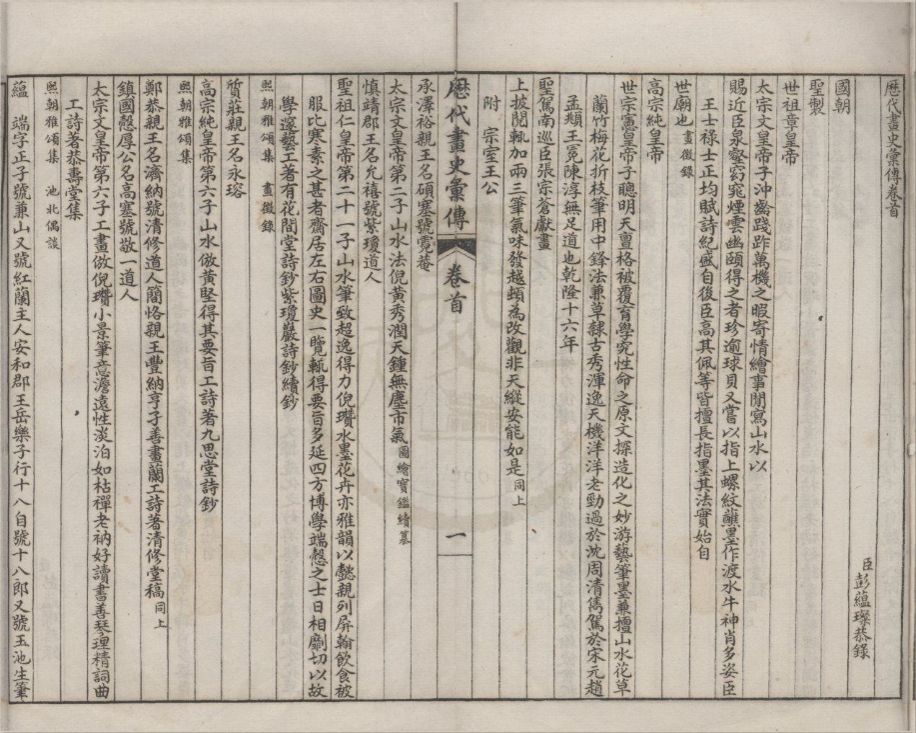 歷代畫史彙傳卷首
臣彭蘊璨恭錄
國朝
聖製
世祖章皇帝
太宗文皇帝子沖齡踐阼萬機之暇寄情繪事閒寫山水以
賜近臣泉壑窈窕煙雲幽頤得之者珍逾球貝又嘗以指上螺紋蘸墨作渡水牛神肖多姿臣
王士祿士正均賦詩紀盛自後臣高其佩等皆擅長指墨其法實始自
世廟也畫徵錄
高宗純皇帝
世宗憲皇帝子聰明天亶格被覆育學究性命之原文探造化之妙游藝筆墨兼擅山水花草
蘭竹梅花折枝筆用中鋒法兼草隸古秀渾逸天機洋洋老勁過於沈周清雋駕於宋元趙
孟頫王冕陳淳無足道也乾隆十六年
聖駕南巡臣張宗蒼獻畫
上披閱輒加兩三筆氣味發越頓為改觀非天縱安能如是同上
附 宗室王公
歷代畫史彙傳 卷首 一
承澤裕親王名碩塞號霓菴
太宗文皇帝第二子山水法倪黃秀潤天鍾無塵市氣圖繪寶鑑續纂
慎靖郡王名允禧號紫瓊道人
聖祖仁皇帝第二十一子山水筆致超逸得力倪瓚水墨花卉亦雅韻以懿親列屏翰飲食被
服比寒素之甚者齋居左右圖史一覽輒得要旨多延四方博學端慤之士日相劘切以故
學邃藝工著有花間堂詩鈔紫瓊巖詩鈔續鈔
熙朝雅頌集 畫徵錄
質莊親王名永瑢
高宗純皇帝第六子山水倣黃堅得其要旨工詩著九思堂詩鈔
熙朝雅頌集
鄭恭親王名濟納號清修道人簡恪親王豐納亨子善畫蘭工詩著清修堂稿同上
鎮國慤厚公名高塞號敬一道人
太宗文皇帝第六子工畫倣倪瓚小景筆意澹遠性淡泊如枯禪老衲好讀書善琴理精詞曲
工詩著恭壽堂集
熙朝雅頌集 池北偶談
蘊 端字正子號兼山又號紅蘭主人安和郡王岳樂子行十八自號十八郎又號玉池生筆